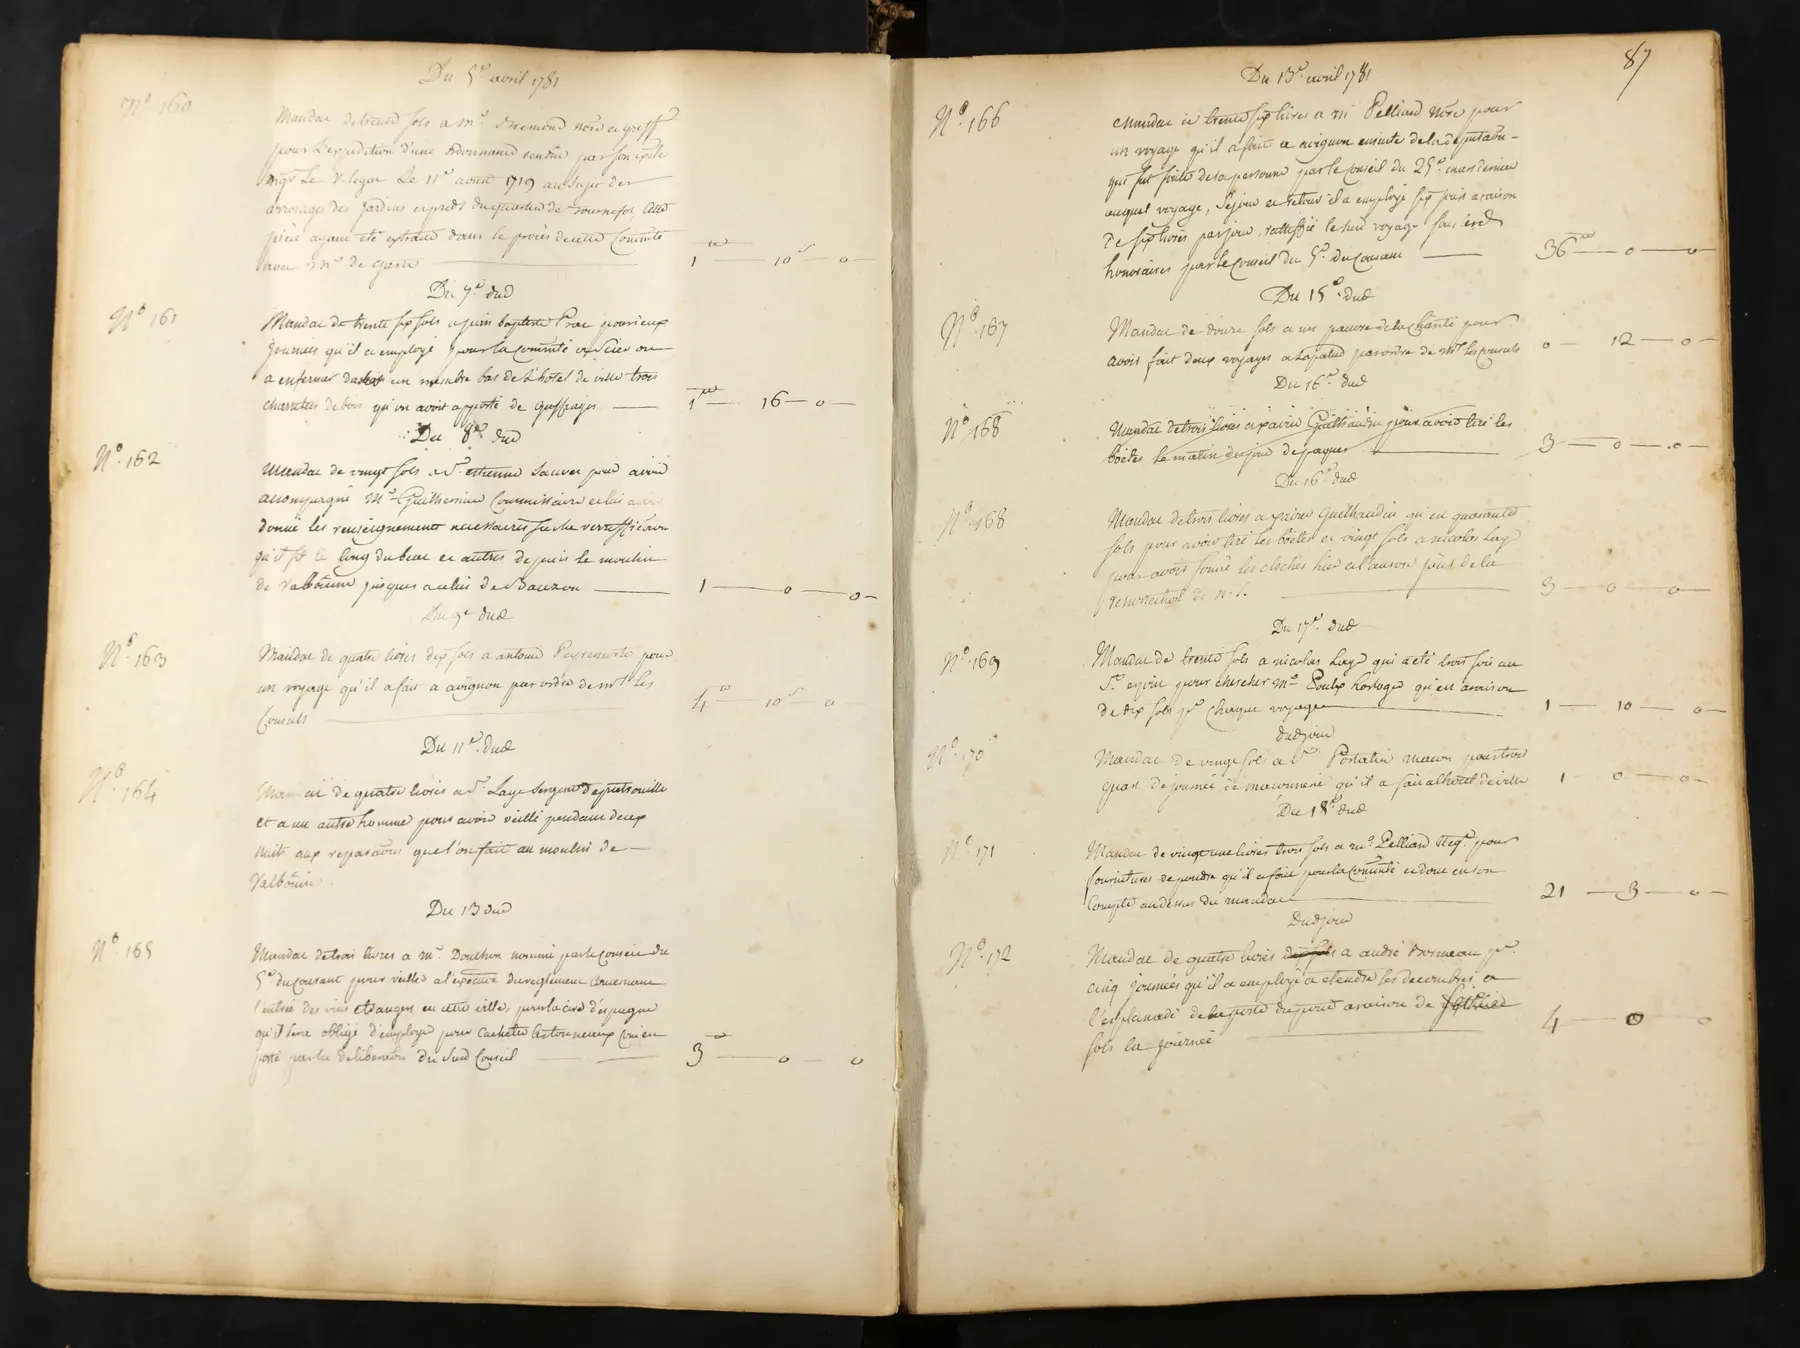 Du 5e avril 1781
No 160
Mandat de trente sols a Mr. notre et greff
pour l'expedition d'une ordonnance rendue par son exce
mgr Le V. legat Le 11e aoust 1719 au sujet des
arrosages des jardins et preds du quartier de Tournefol, cette
piece ayant eté extraite dans le procès de cette Commté
avec Mr de 1 — 10 s — 0 —
Du 7e dud
No 161
Mandat de trente six sols a jean baptiste Prat pour
journées qu'il a employé pour la commté a scier ou
a enfermer dans un membre bas de l'hotel de ville trois
charrettes de bois qu'on avoit apporté de 1 — 16 — 0 —
Du 8e dud
No 162
Mandat de vingt sols a Sr. estienne Sauvet pour avoir
accompagné Mr Commissaire et lui avoir
donné les renseignements necessaires sur la verification
qu'il fit le long du et autres depuis le moulin
de Valbonne jusques a celui de Bauzon 1 — 0 — 0 —
Du 9e dud
No 163
Mandat de quatre livres dix sols a antoine Peyremorte pour
un voyage qu'il a fait a avignon par ordre de Mrs les
Consuls 4 — 10 s — 0
Du 11e dud
No 164
Mandat de quatre livres a Sr. Laye sergent de patrouille
et a un autre homme pour avoir veillé pendant deux
nuits aux reparaons que l'on fait au moulin de
Valbonne.
Du 13 dud
No 165
Mandat de trois livres a Mr. Douthon nommé par le Conseil du
5e du Courant pour veiller a l'execution du reglement Concernant
l'entrée des vins etrangers en cette ville, pour la cire d'espagne
qu'il sera obligé d'employer pour cacheter les tonneaux
porté par la deliberaon du Susd Conseil 3 — 0 0
87
Du 13e avril 1781
No 166
Mandat de trente six livres a Mr Pelliard notre pour
un voyage qu'il a fait a avignon ensuite de la deputaon
qui fut faite de sa personne par le Conseil du 25e mars dernier
auquel voyage, sejour et retour il a employé six jours a raison
de six livres par jour, ratiffié le susd voyage
honoraires par le Conseil du 5e du Courant 36 — 0 — 0
Du 15e dud
No 167
Mandat de douze sols a un pauvre de la Charité pour
avoir fait deux voyages a Lapalud par ordre de Mrs les consuls 0 — 12 — 0 —
Du 16e dud
No 168
Mandat de trois livres a xavier Guilhaudin pour avoir tiré les
boëtes le matin du jour de paques 3 — 0 — 0 —
Du 16e dud
No 168
Mandat de trois livres a xavier Guilhaudin qu'est quarante
sols pour avoir tiré les boëtes et vingt sols a nicolas Laye
pour avoir sonné les cloches hier a l'aurore jour de la
resurrection de n. S. 3 — 0 — 0 —
Du 17e dud
No 169
Mandat de trente sols a nicolas Laye qui a eté trois fois au
St. esprit pour chercher Mr horloger qu'est a raison
de dix sols pr Chaque voyage 1 — 10 — 0 —
Dudjour
No 170
Mandat de vingt sols a Sr Portalier macon pour trois
quart de journée de maconnerie qu'il a fait a l'hotel de ville 1 — 0 — 0 —
Du 18e dud
No 171
Mandat de vingt une livres trois sols a Mr. Pelliard Negt. pour
fournitures de poudre qu'il a fait pour la Commté et dont en son
Compte au dessus du mandat 21 — 3 — 0 —
Dudjour
No 172
Mandat de quatre livres dix sols a andré Armeau pr.
cinq journées qu'il a employé a etendre les decombres a
l'esplanade de la porte du pont a raison de
sols la journée 4 — 0 — 0